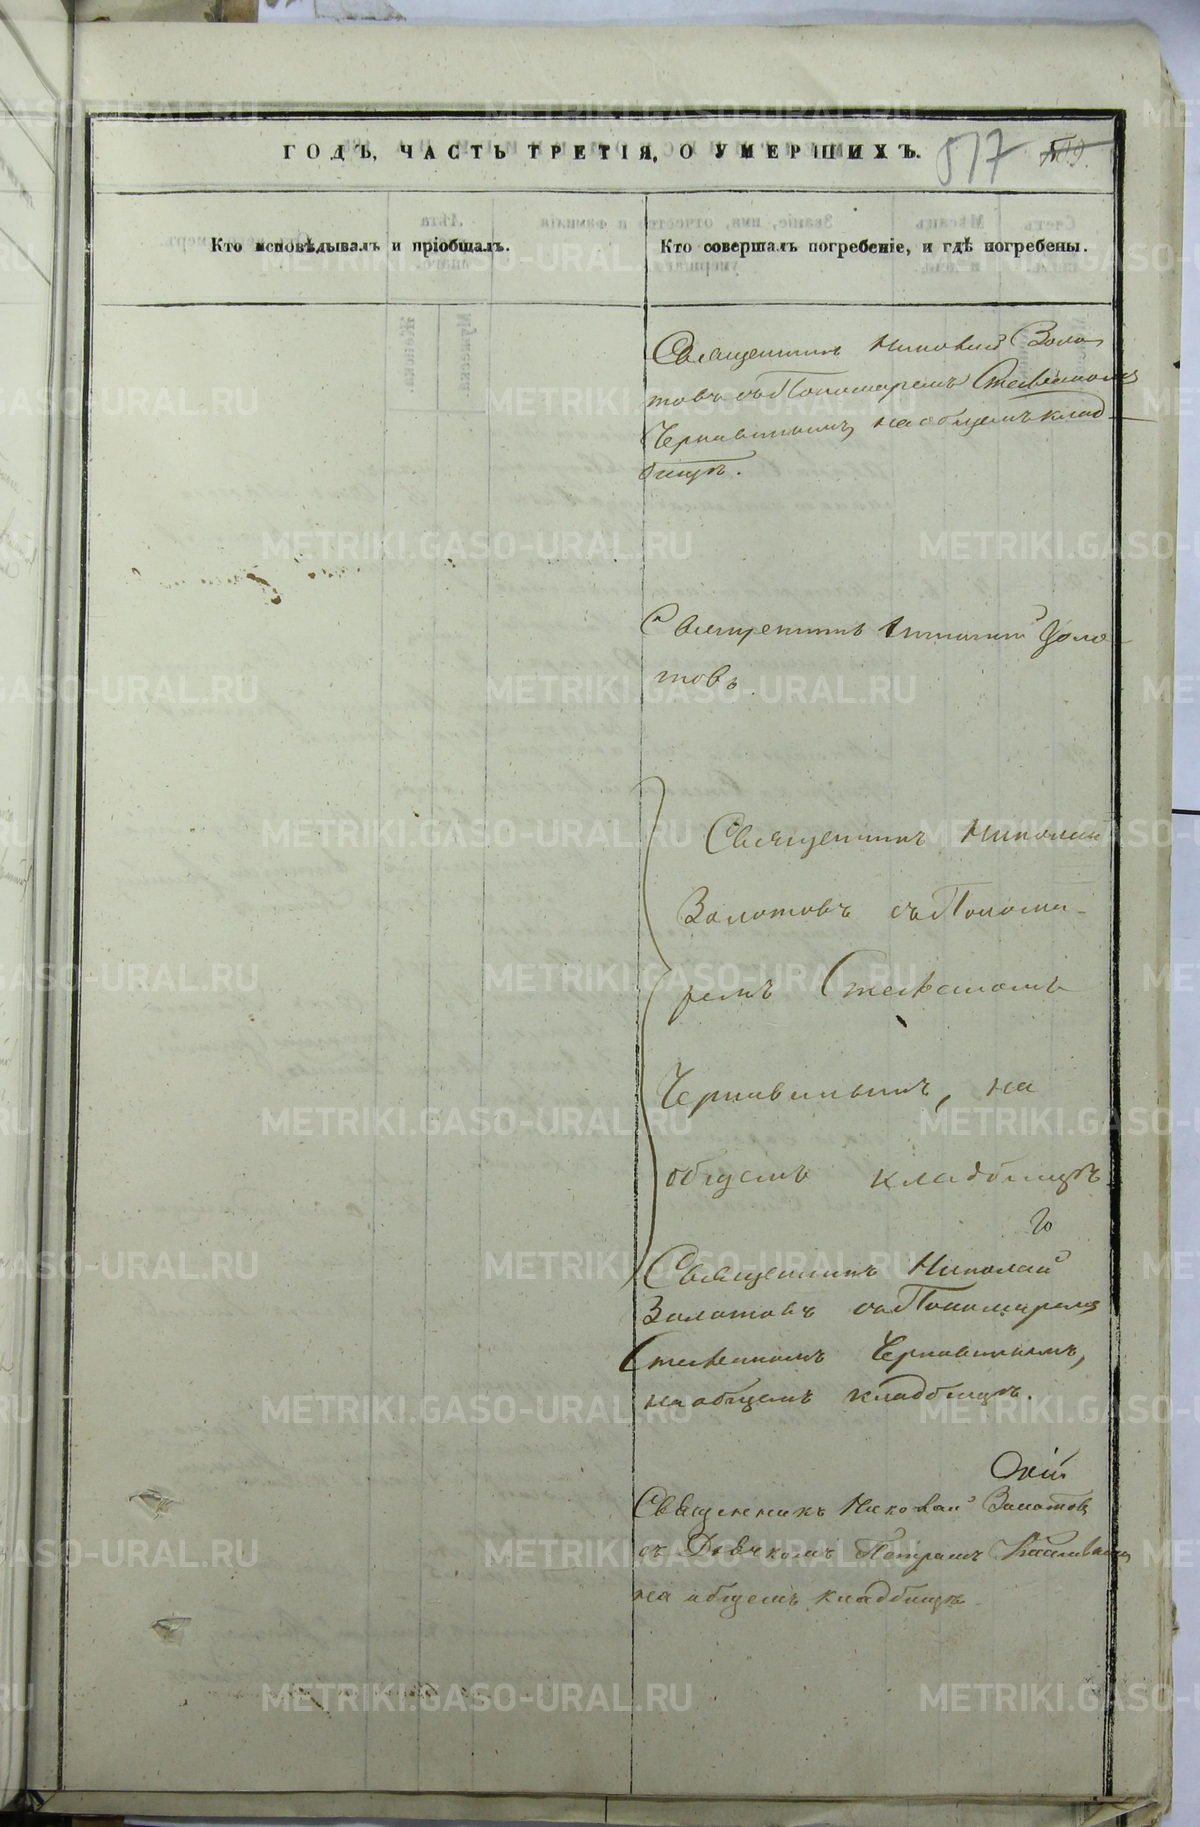 ГОДЪ, ЧАСТЬ ТРЕТІЯ, О УМЕРШИХЪ.
517
Кто исповѣдывалъ и пріобщалъ.
Кто совершалъ погребеніе, и гдѣ погребены.
Священникъ Николай Золо
товъ съ Пономаремъ Стефаномъ
Чернавинымъ, на общемъ клад
бищѣ.
Священникъ Николай Золо
товъ
Священникъ Николай
Золотовъ съ Понома-
ремъ Стефаномъ
Чернавинымъ, на
общемъ кладбищѣ
Священникъ Николай
Золотовъ съ Пономаремъ
Стефаномъ Чернавинымъ,
на общемъ кладбищѣ.
Священникъ Николай Золотовъ
съ Дьячкомъ Петромъ
на общемъ кладбищѣ
METRIKI.GASO-URAL.RU